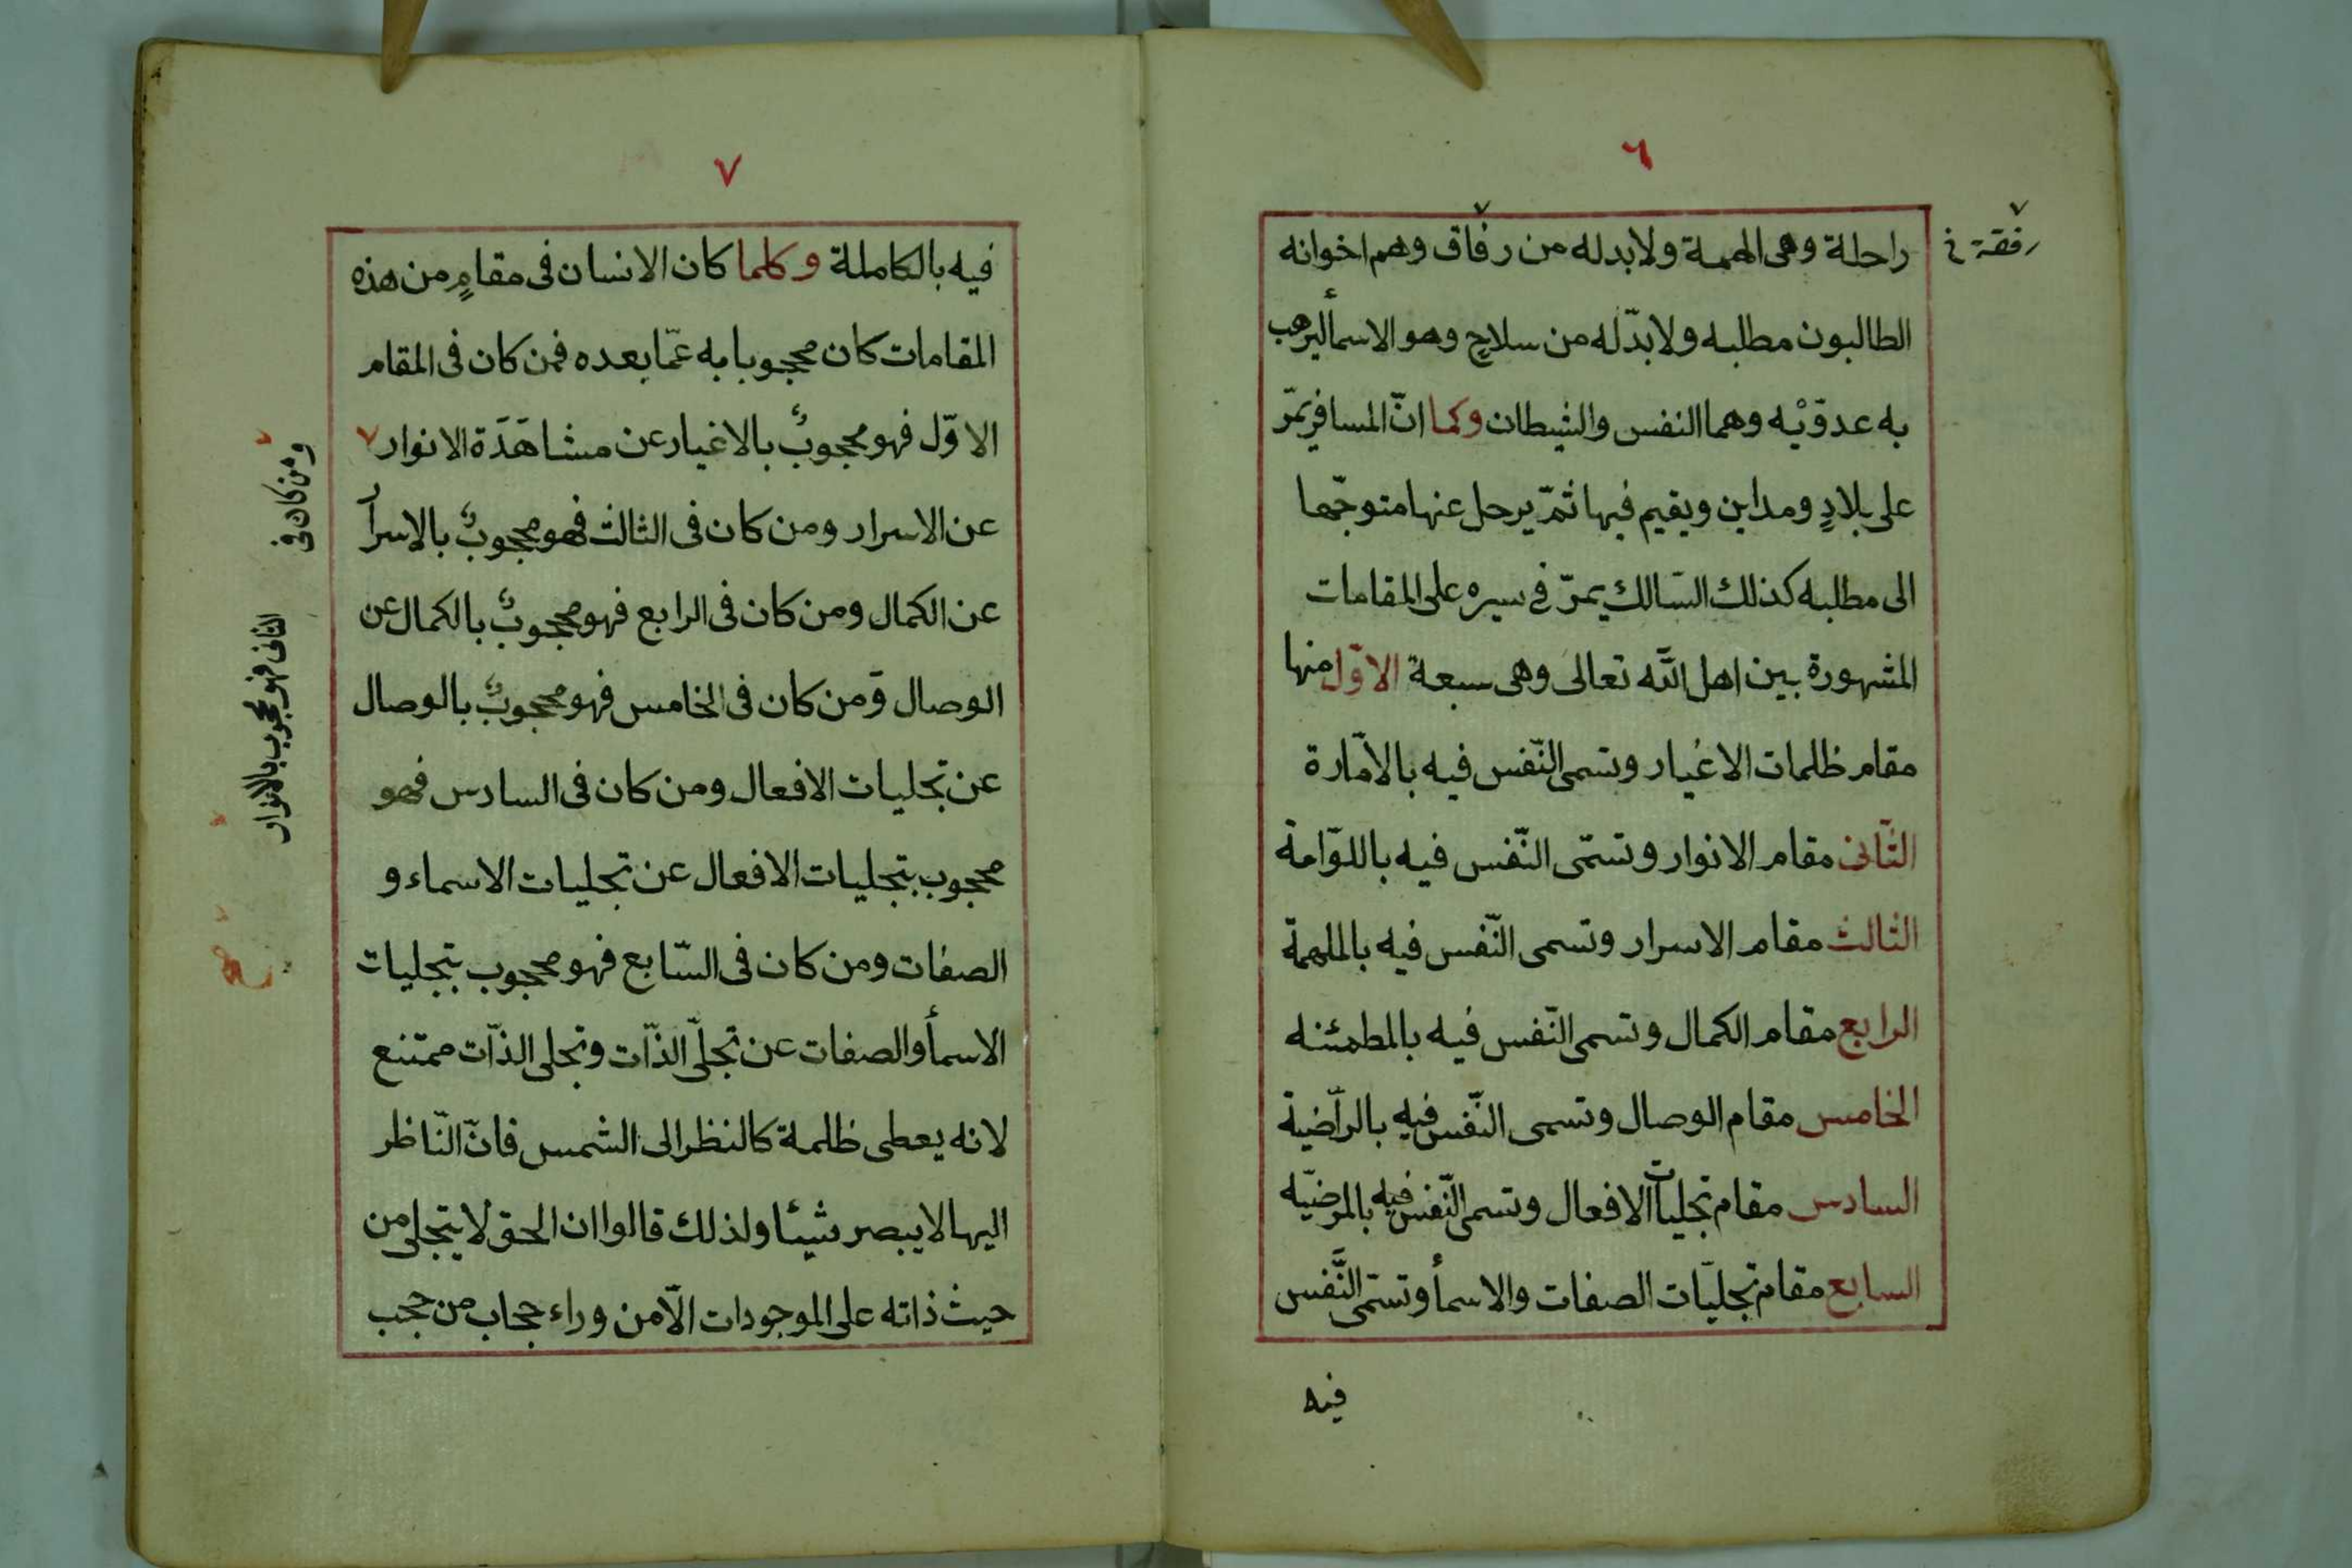 ٦
راحلة وهى الهمة ولابد له من رفاق وهم اخوانه
رفقة خ
الطالبون مطلبه ولا بدّ له من سلاحٍ وهو الاسمأ ليرهب
به عدوّيْه وهما النفس والشيطان وكما انّ المسافر يمرّ
على بلادٍ ومداين ويقيم فيها ثمّ يرحل عنها متوجّها
الى مطلبه كذلك السّالك يمرّ فى سيره على المقامات
المشهورة بين اهل اللّه تعالى وهى سبعة الاوّل منها
مقام ظلمات الاغيار وتسمى النّفس فيه بالامّارة
الثّانى مقام الانوار وتسمّى النّفس فيه باللوّامة
الثالث مقام الاسرار وتسمى النّفس فيه بالملهمة
الرابع مقام الكمال وتسمى النّفس فيه بالمطمئنه
الخامس مقام الوصال وتسمى النّفس فيه بالرّاضية
السادس مقام تجليات الافعال وتسمى النّفس فيه بالمرضيّه
السابع مقام تجليّات الصفات والاسمأ وتسمّى النَّفس
فيه
٧
فيه بالكاملة وكلما كان الانسان فى مقامٍ من هذه
المقامات كان محجوبا به عمّا بعده فمن كان فى المقام
الاوّل فهو محجوبٌ بالاغيار عن مشاهَدَة الانوار
ومن كان فى
الثانى فهو محجوب بالانوار
عن الاسرار ومن كان فى الثالث فهو محجوبٌ بالاسرار
عن الكمال ومن كان فى الرابع فهو محجوبٌ بالكمال عن
الوصال ومن كان فى الخامس فهو محجوبٌ بالوصال
عن تجليات الافعال ومن كان فى السادس فهو
محجوب بتجليات الافعال عن تجليات الاسماء و
الصفات ومن كان فى السّابع فهو محجوب بتجليات
الاسمأ والصفات عن تجلّى الذّات وتجلى الذّات ممتنع
لانه يعطى ظلمة كالنظر الى الشمس فانّ النّاظر
اليها لا يبصر شيئا ولذلك قالوا ان الحق لا يتجلى من
حيث ذاته على الموجودات الّا من وراء حجاب من حجب